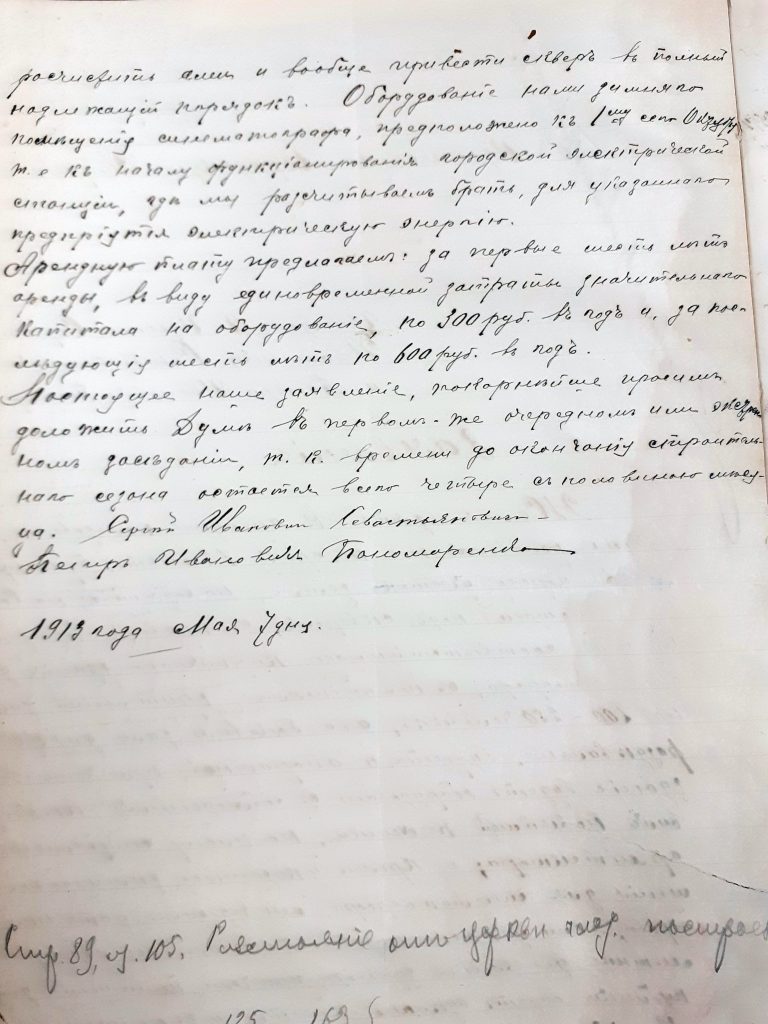 расчистить аллеи и вообще привести скверъ въ полный
надлежащій порядокъ. Оборудованіе нами зимняго
помѣщенія синематографа, предположено къ 1му сего
т.е къ началу функціонированія городской электрической
станціи, гдѣ мы разсчитываемъ брать, для указаннаго
предпріятія электрическую энергію.
Арендную плату предлагаемъ: за первые шесть лѣтъ
аренды, въ виду единовременной затраты значительнаго
капитала на оборудованіе, по 300 руб. въ годъ и, за пос-
лѣдующія шесть лѣтъ по 600 руб. въ годъ.
Настоящее наше заявленіе, покорнѣйше просимъ
доложить Думѣ въ первомъ-же очередномъ или
номъ засѣданіи, т. к. времени до окончанія строитель-
наго сезона остается всего четыре съ половиною мѣся-
ца. Сергѣй Ивановичъ Севастьяновичъ
Петръ Ивановичъ Пономаренко
1913 года Мая 7 дня.
Стр. 89, 105. Разстояніе отъ церкви
125 163